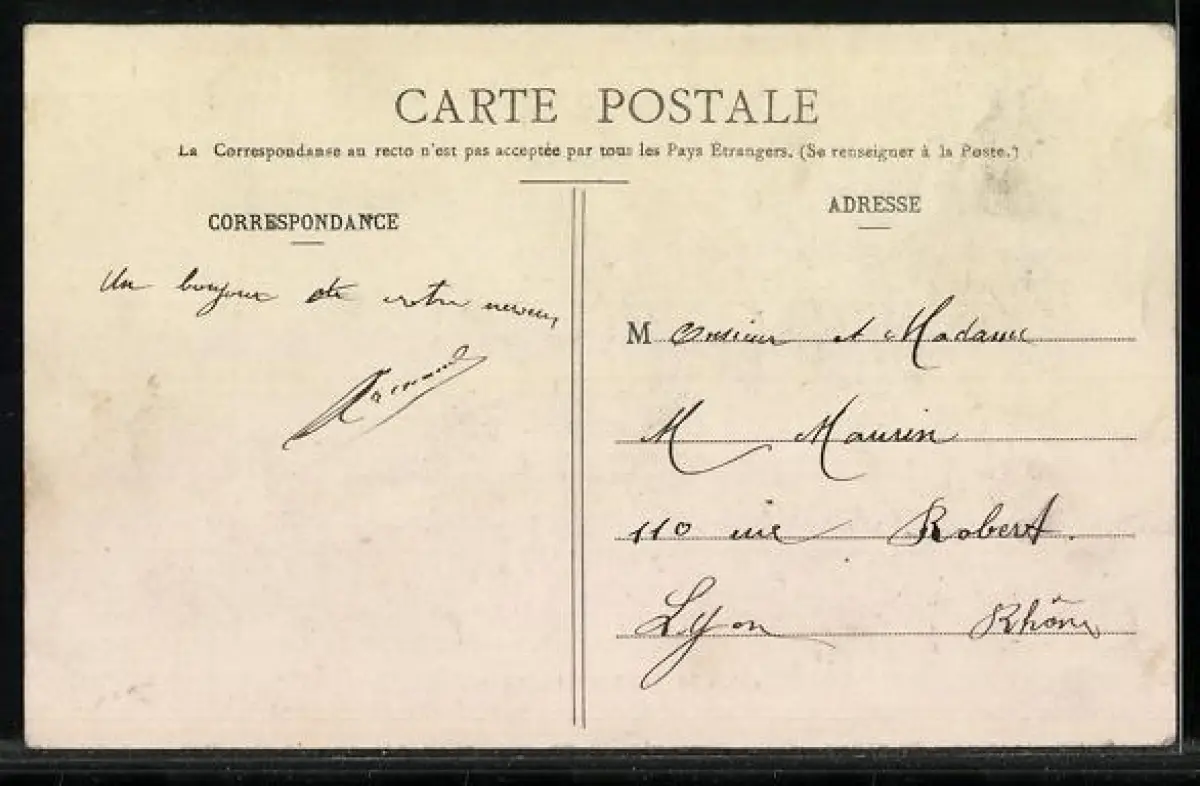 CARTE POSTALE
La Correspondanse au recto n'est pas acceptée par tous les Pays Étrangers. (Se renseigner à la Poste.)
CORRESPONDANCE
Un bonjour de votre neveu,
ADRESSE
Monsieur et Madame
M Maurin
110 rue Robert.
Lyon Rhône